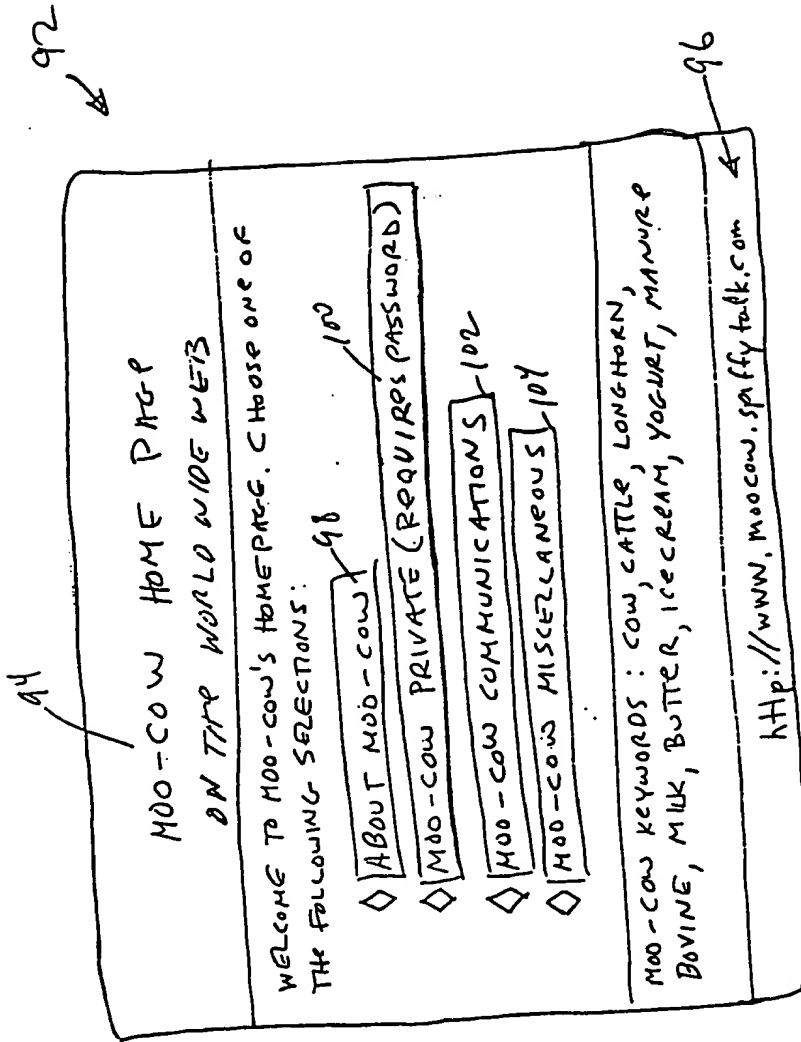 92
94
MOO-COW HOME PAGE
ON THE WORLD WIDE WEB
WELCOME TO MOO-COW'S HOMEPAGE. CHOOSE ONE OF
THE FOLLOWING SELECTIONS:
98
◇ ABOUT MOO-COW
100
◇ MOO-COW PRIVATE (REQUIRES PASSWORD)
◇ MOO-COW COMMUNICATIONS 102
◇ MOO-COW MISCELLANEOUS 104
MOO-COW KEYWORDS: COW, CATTLE, LONGHORN,
BOVINE, MILK, BUTTER, ICECREAM, YOGURT, MANURE
http://www.moocow.spiffytalk.com
96